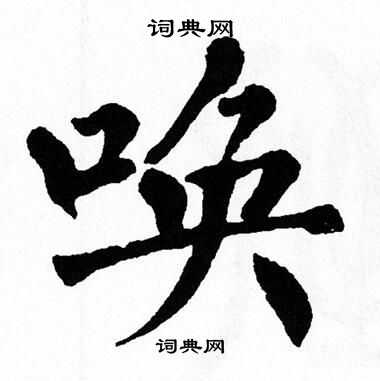 词典网
唤
词典网